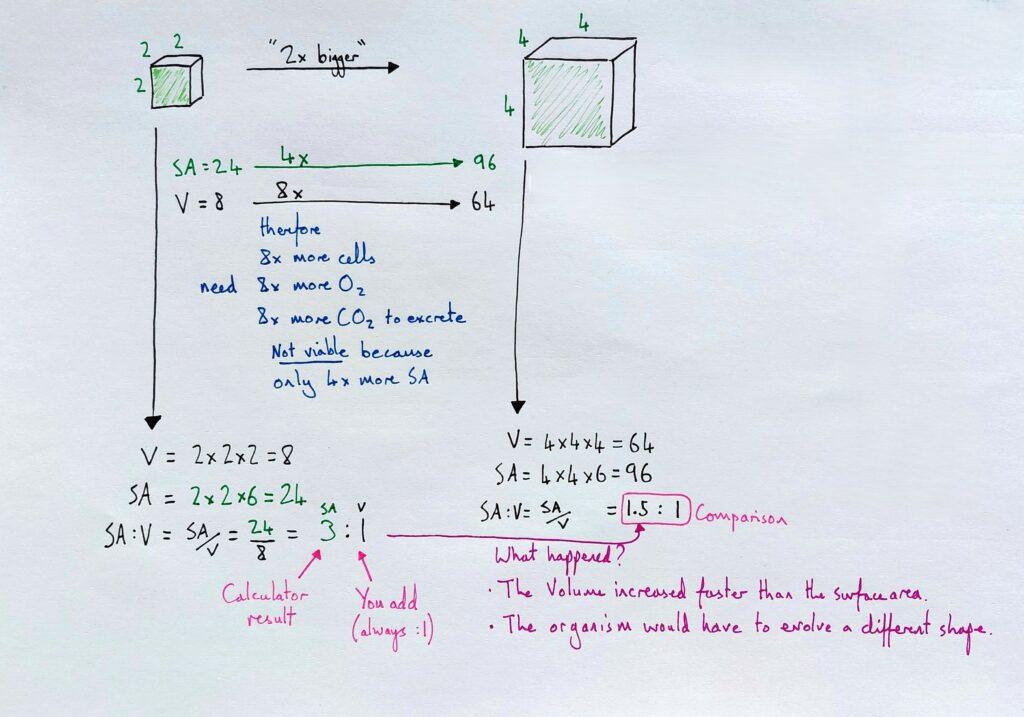 2 2
2
"2x bigger"
4 4
4
SA = 24 4x 96
V = 8 8x 64
therefore
8x more cells
need 8x more O₂
8x more CO₂ to excrete
Not viable because
only 4x more SA
V = 2x2x2 = 8
SA = 2x2x6 = 24
SA V
SA:V = SA/V = 24/8 = 3 : 1
Calculator
result
You add
(always :1)
V = 4x4x4 = 64
SA = 4x4x6 = 96
SA:V = SA/V = 1.5 : 1 Comparison
What happened?
· The Volume increased faster than the surface area.
· The organism would have to evolve a different shape.